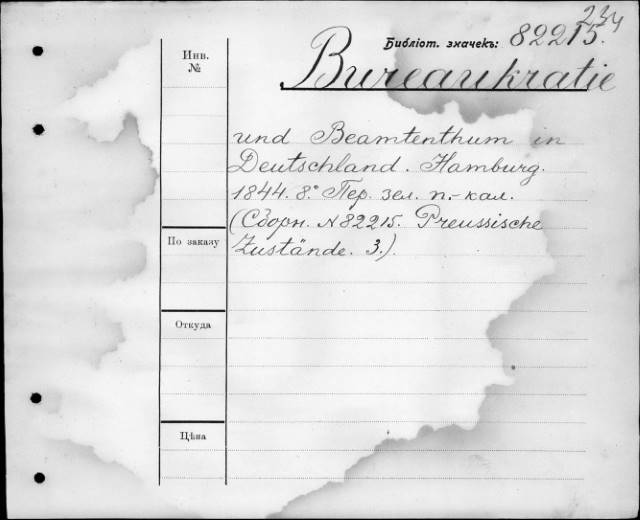 234
Библіот. значекъ: 82215.
Bureaukratie
Инв.
№
und Beamtenthum in
Deutschland. Hamburg.
1844. 8.° Пер. зел. п.-кал.
(Сборн. №82215. Preussische
Zustände. 3.).
По заказу
Откуда
Цѣна